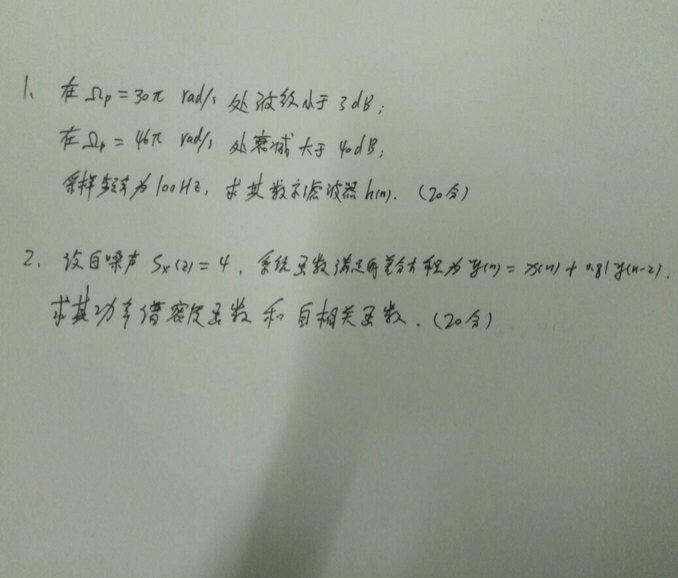 1、在Ωp=30π rad/s 处波纹小于3dB;
在Ωp=46π rad/s 处衰减大于40dB;
采样频率为100Hz,求其数字滤波器h(n).(20分)
2、设白噪声 Sx(z)=4,系统函数满足的差分方程为y(n)=x(n)+0.81y(n-2).
求其功率谱密度函数和自相关函数.(20分)